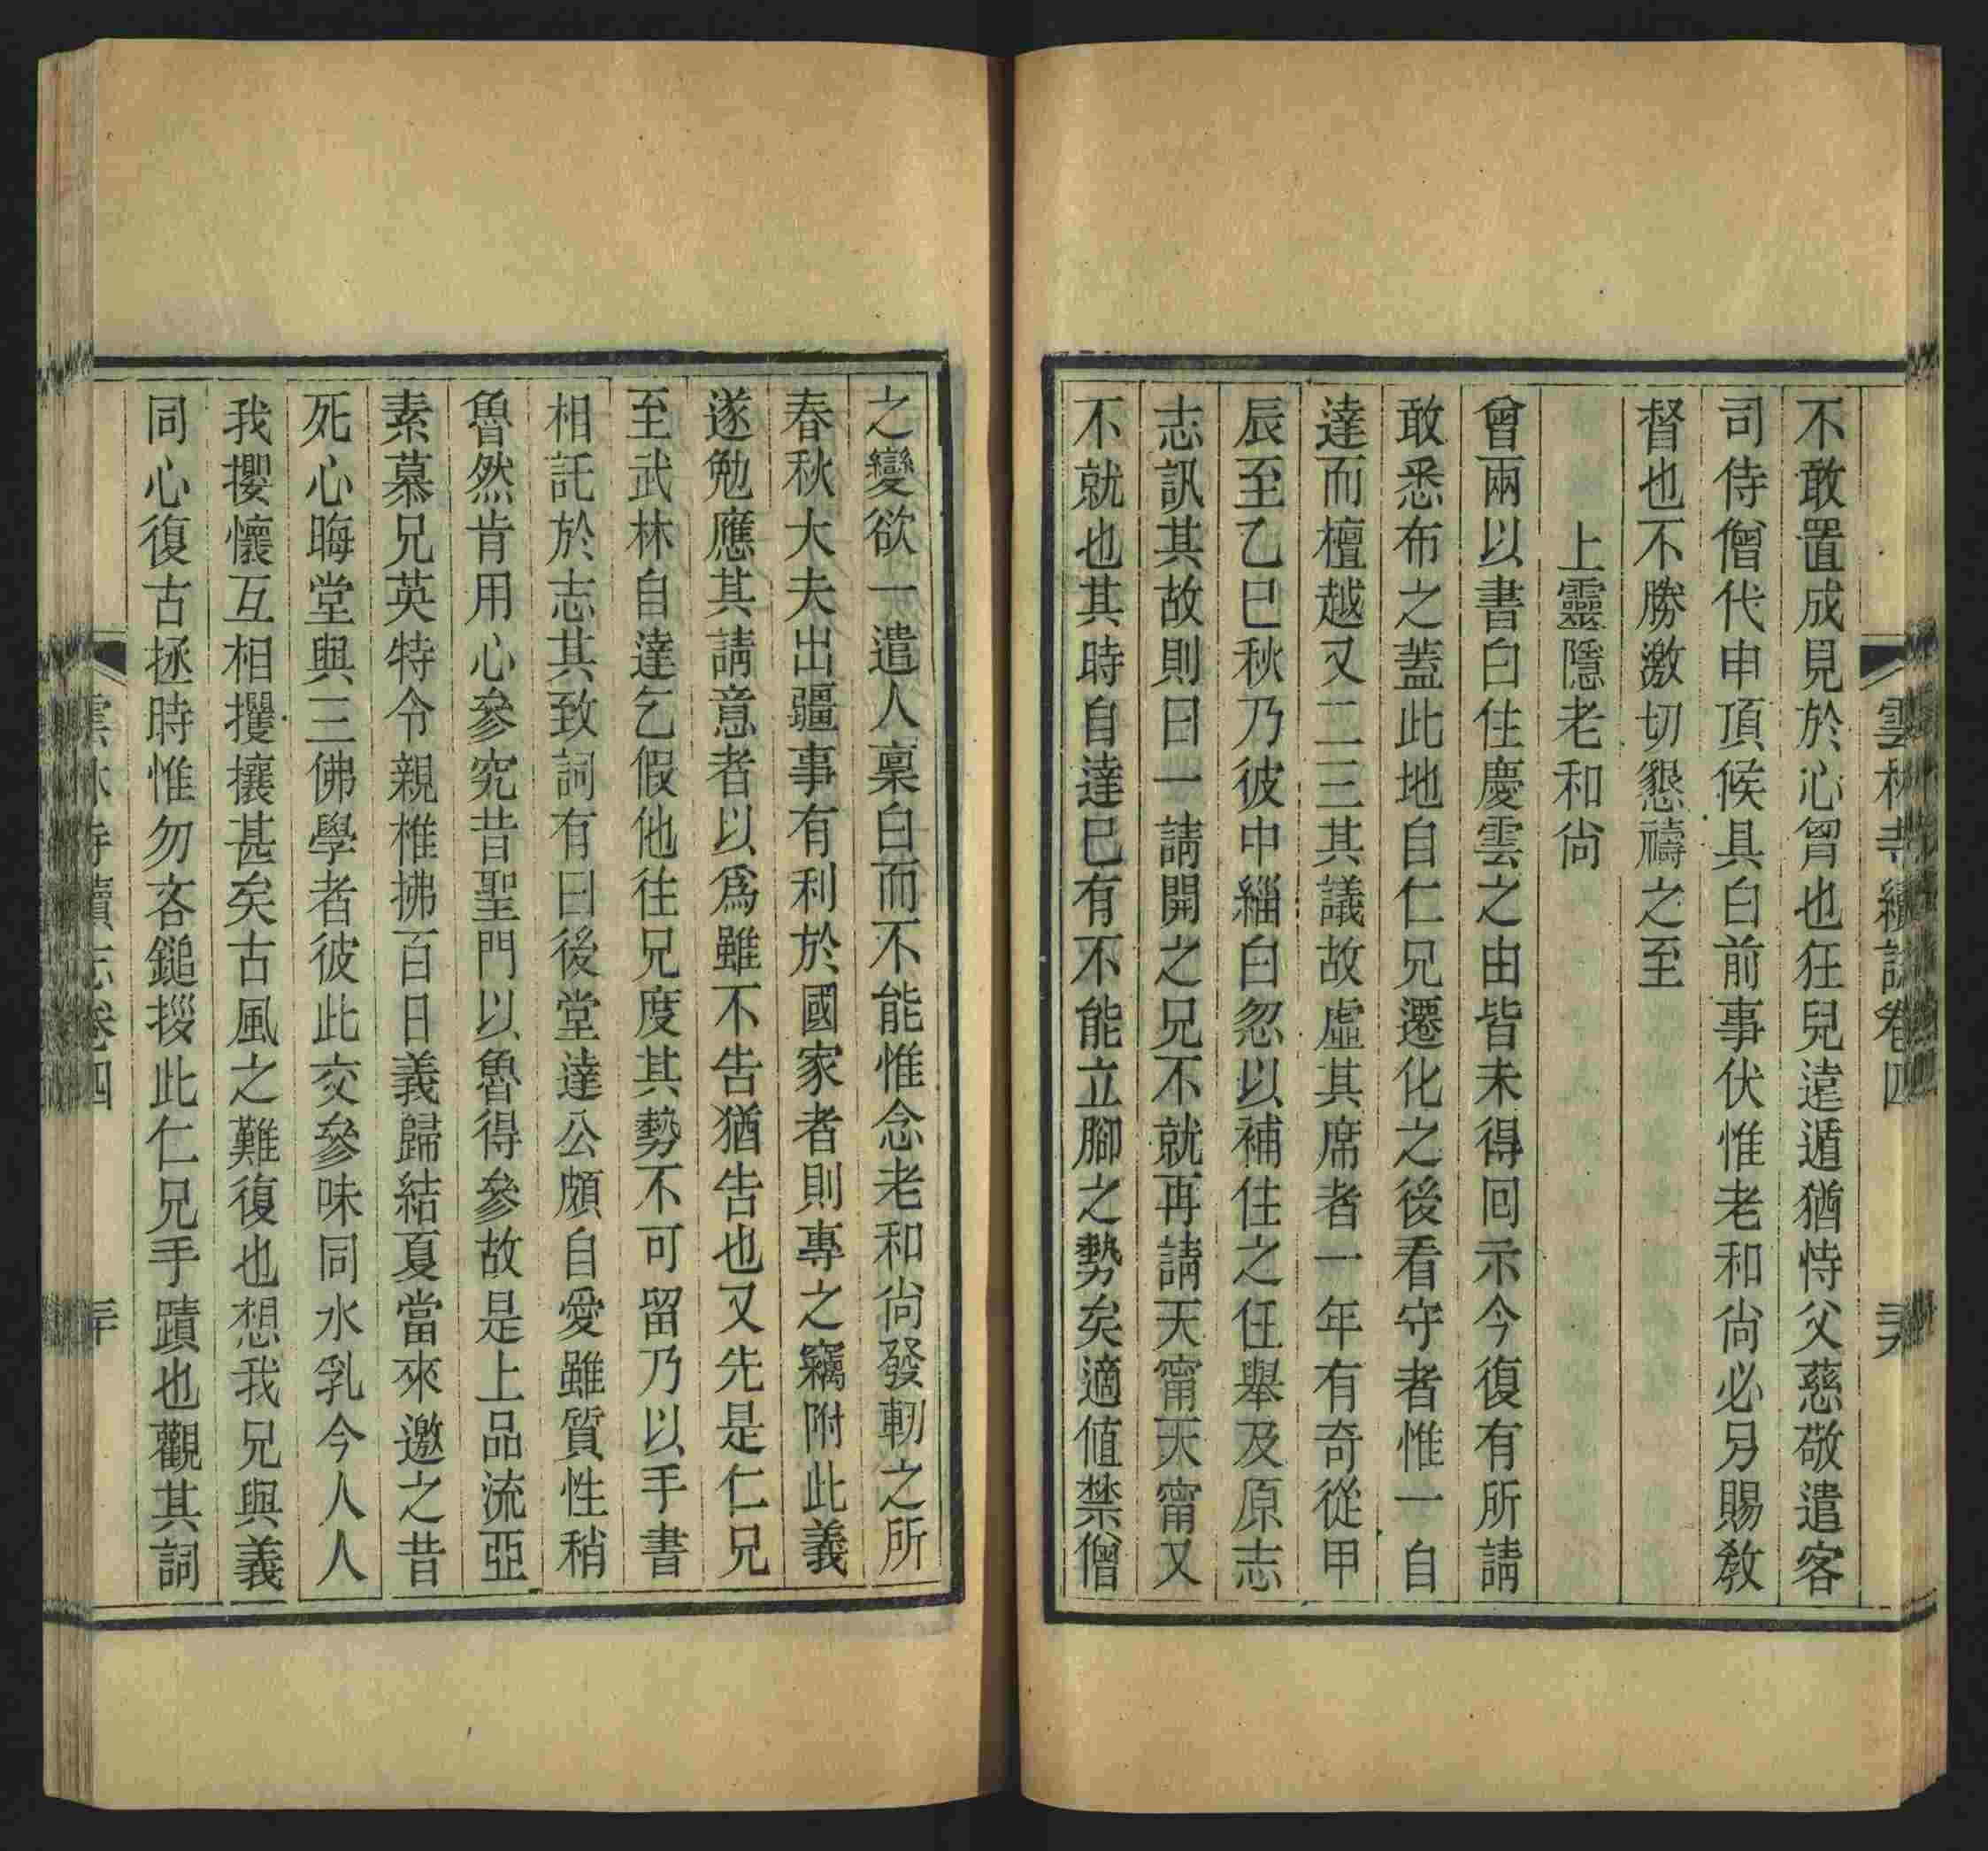 雲林寺續誌卷四
不敢置成見於心胷也狂兒遠遁猶恃父慈敬遣客
司侍僧代申頂候具白前事伏惟老和尙必另賜敎
督也不勝激切懇禱之至
上靈隱老和尙
曾兩以書白住慶雲之由皆未得回示今復有所請
敢悉布之蓋此地自仁兄遷化之後看守者惟一自
達而檀越又二三其議故虛其席者一年有奇從甲
辰至乙巳秋乃彼中緇白忽以補住之任舉及原志
志訊其故則曰一請開之兄不就再請天甯天甯又
不就也其時自達已有不能立腳之勢矣適値禁僧
之變欲一遣人稟白而不能惟念老和尙發軔之所
春秋大夫出疆事有利於國家者則專之竊附此義
遂勉應其請意者以爲雖不告猶告也又先是仁兄
至武林自達乞假他往兄度其勢不可留乃以手書
相託於志其致詞有曰後堂達公頗自愛雖質性稍
魯然肯用心參究昔聖門以魯得參故是上品流亞
素慕兄英特令親椎拂百日義歸結夏當來邀之昔
死心晦堂與三佛學者彼此交參味同水乳今人人
我攖懷互相攫攘甚矣古風之難復也想我兄與義
同心復古拯時惟勿吝鎚拶此仁兄手蹟也觀其詞
雲林寺續志卷四